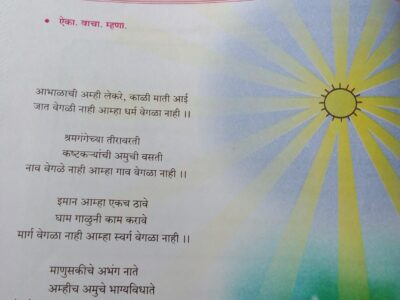 • ऐका. वाचा. म्हणा.
आभाळाची अम्ही लेकरे, काळी माती आई
जात वेगळी नाही आम्हा धर्म वेगळा नाही ।।
श्रमगंगेच्या तीरावरती
कष्टकऱ्यांची अमुची वसती
नाव वेगळे नाही आम्हा गाव वेगळा नाही ।।
इमान आम्हा एकच ठावे
घाम गाळुनी काम करावे
मार्ग वेगळा नाही आम्हा स्वर्ग वेगळा नाही ।।
माणुसकीचे अभंग नाते
अम्हीच अमुचे भाग्यविधाते